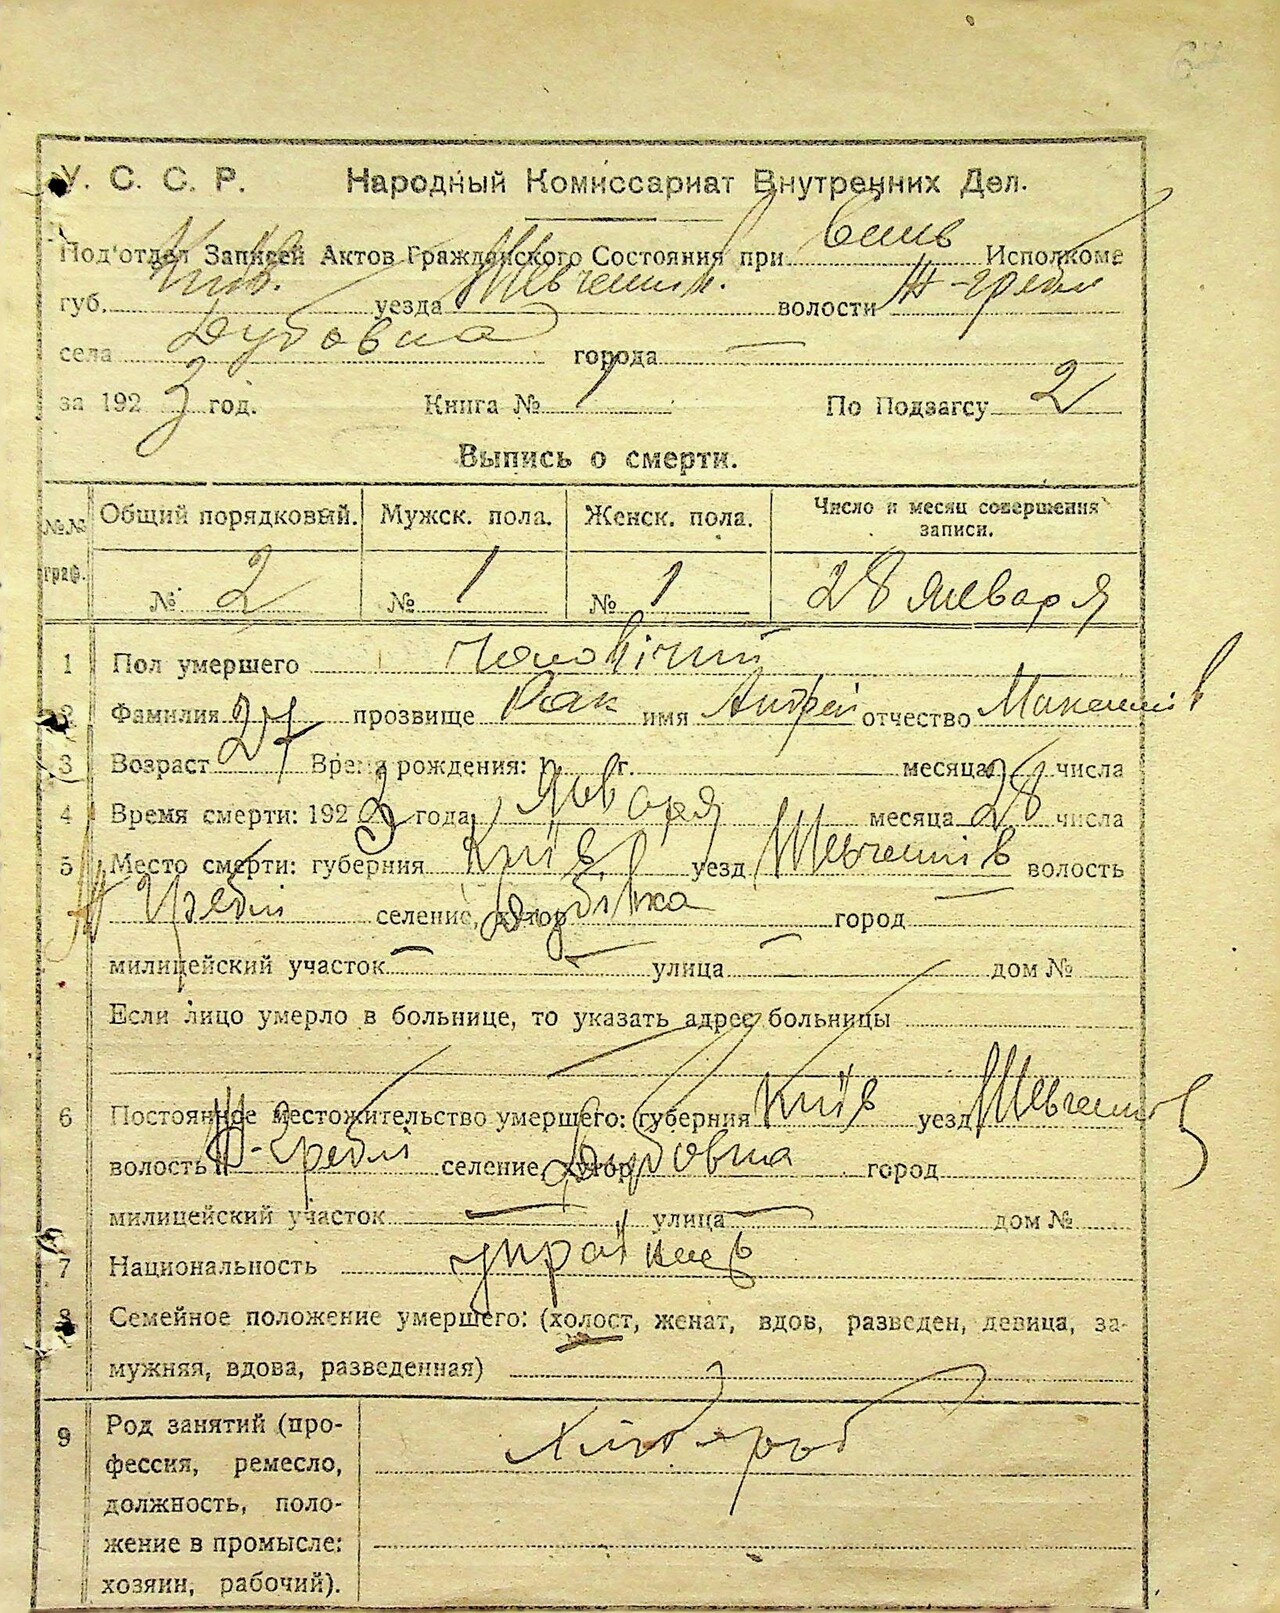 У. С. С. Р. Народный Комиссариат Внутренних Дел.
Под'отдел Записей Актов Гражданского Состояния при Исполкоме
губ. Київ. уезда Шевченків. волости Ж-гребли
села Дубовка города —
за 1923 год. Книга № 1 По Подзагсу 2
Выпись о смерти.
№№ граф. Общий порядковый. Мужск. пола. Женск. пола. Число и месяц совершения записи.
№ 2 № 1 № 1 28 января
1 Пол умершего чоловічий
2 Фамилия прозвище Рак имя Андрей отчество
3 Возраст 27 Время рождения: г. месяца числа
4 Время смерти: 1923 года января месяца 28 числа
5 Место смерти: губерния Київ уезд Шевченків волость
Ж Греблі селение, хутор Дубівка город —
милицейский участок — улица — дом №
Если лицо умерло в больнице, то указать адрес больницы
6 Постоянное местожительство умершего: губерния Київ уезд Шевченків
волость Ж-Греблі селение, хутор Дубовка город
милицейский участок — улица — дом №
7 Национальность украінец
8 Семейное положение умершего: (холост, женат, вдов, разведен, девица, за-
мужняя, вдова, разведенная)
9 Род занятий (про- Хлібороб
фессия, ремесло,
должность, поло-
жение в промысле:
хозяин, рабочий).